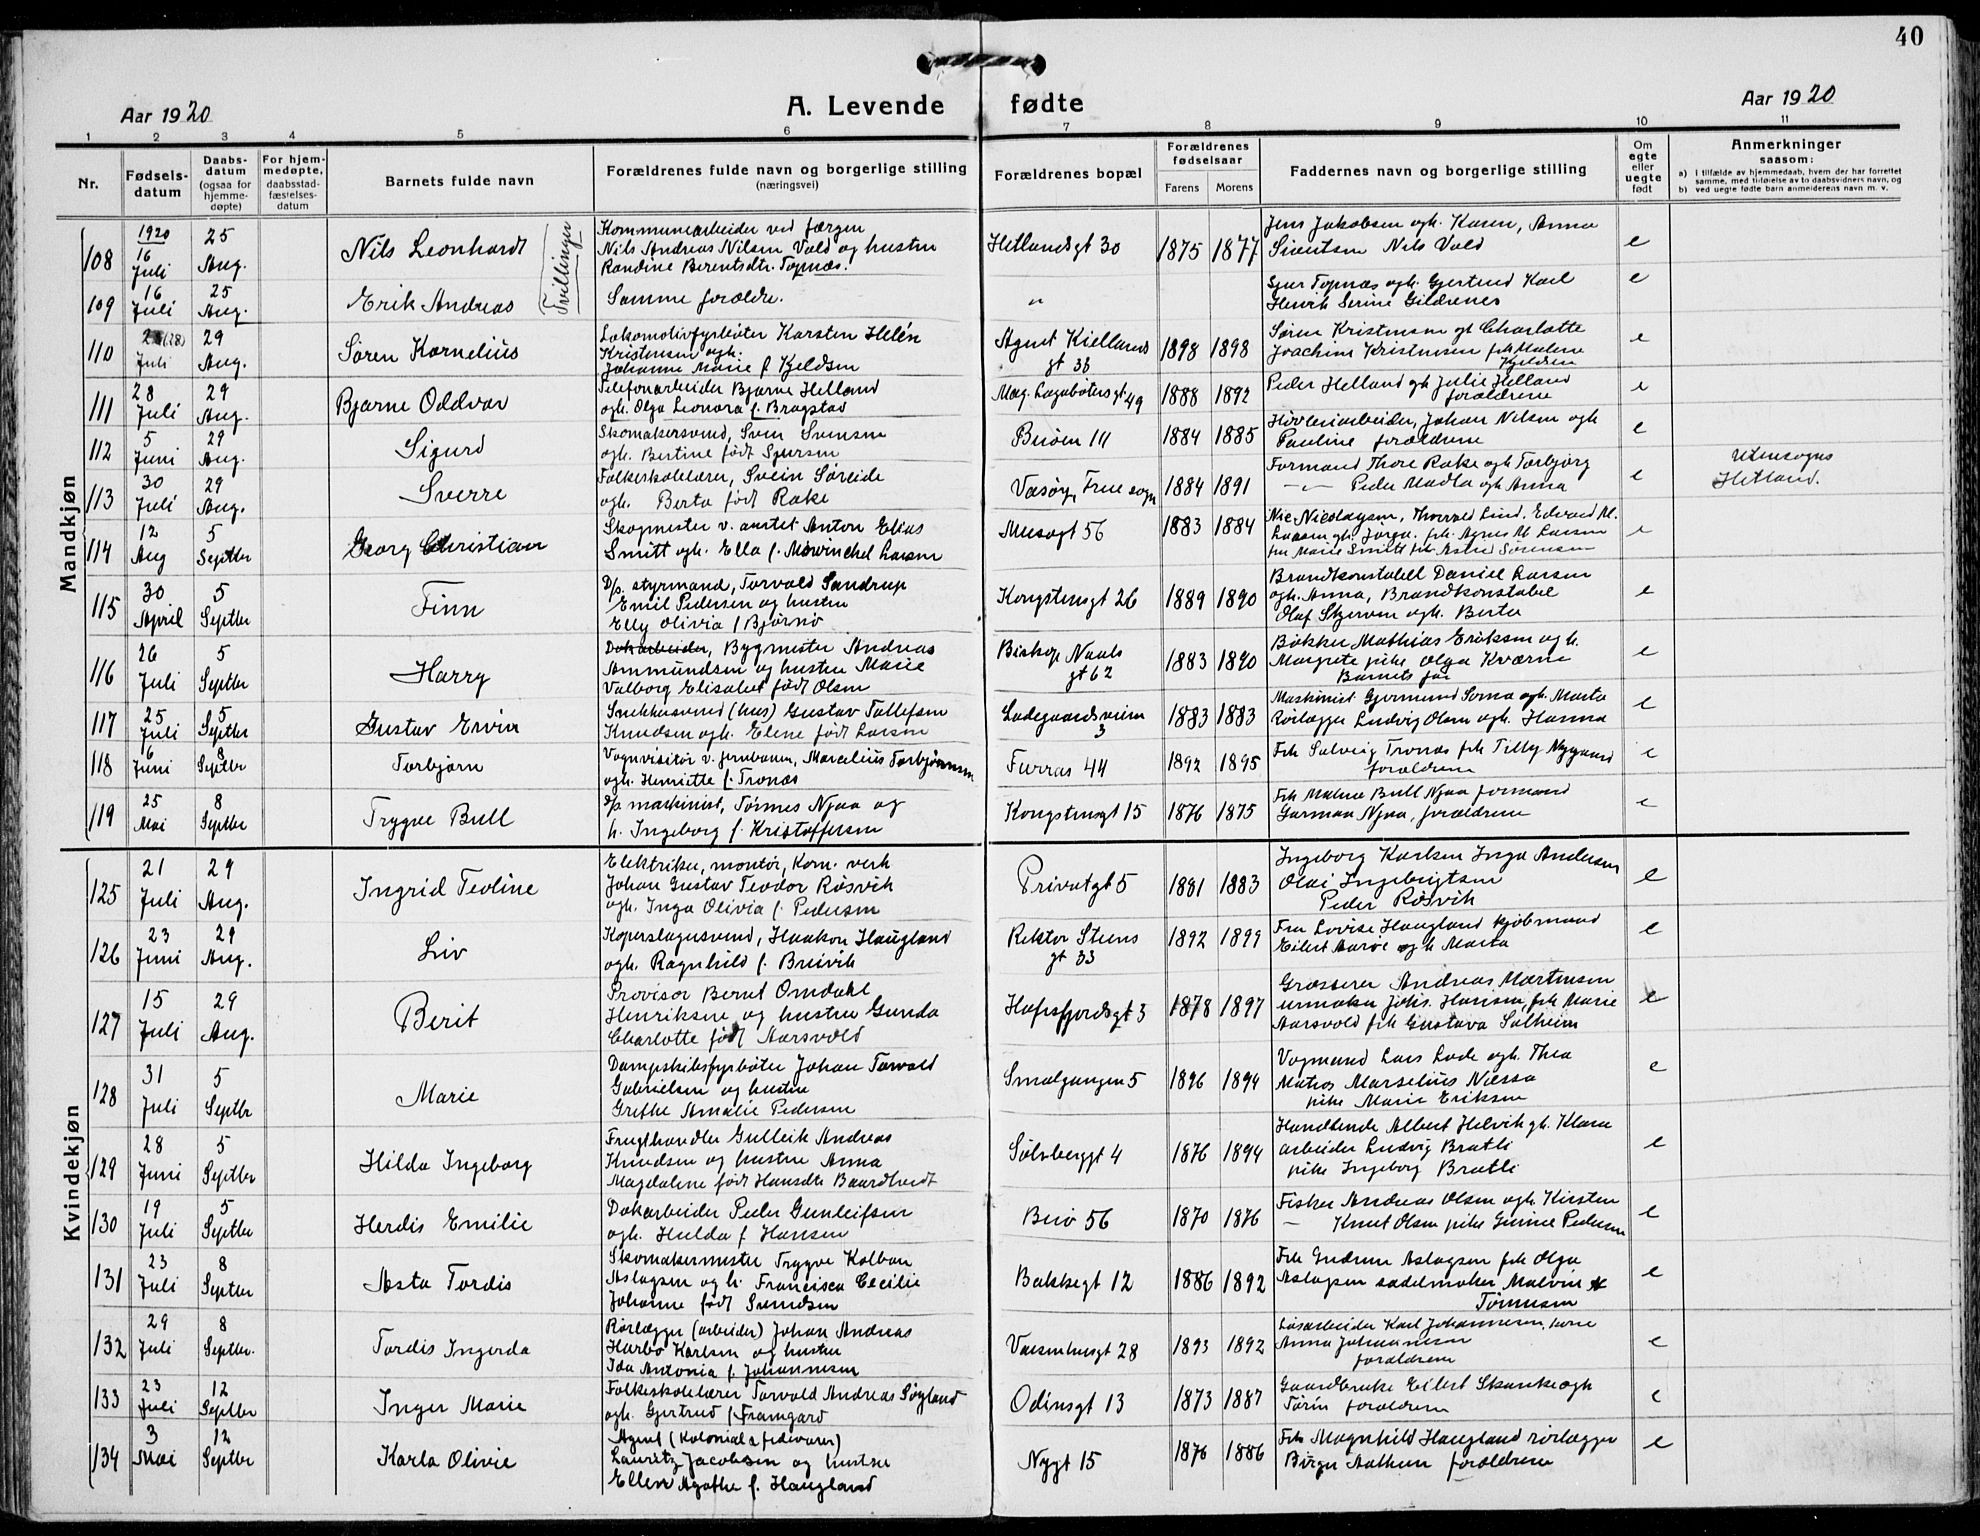 40
Aar 1920
A. Levende fødte
Aar 1920
1 2 3 4 5 6 7 8 9 10 11
Nr.
Fødsels-
datum
Daabs-
datum
(ogsaa for
hjemme-
døpte)
For hjem-
medøpte,
daabsstad-
fæstelses-
datum
Barnets fulde navn
Forældrenes fulde navn og borgerlige stilling
(næringsvei)
Forældrenes bopæl
Forældrenes
fødselsaar
Farens Morens
Faddernes navn og borgerlige stilling
Om
egte
eller
uegte
født
Anmerkninger
saasom:
a) I tilfælde av hjemmedaab, hvem der har forrettet
samme, med tilføielse av to daabsvidners navn, og
b) ved uegte fødte barn anmelderens navn m. v.
Mandkjøn
108
1920
16
Juli
25
Aug.
Nils Leonhardt
Tvillinger
Kommunearbeider ved færgen
Nils Andreas Nilsen Vold og hustru
Randine Berentsdtr. Topnæs.
Hetlandsgt 30
1875 1877
Jens Jakobsen ogh. Karen, Anna
Sivertsen Nils Vold
e
109
16
Juli
25
Aug.
Erik Andreas
Samme forældre.
"
Sjur Topnæs ogh. Gjertrud Karl
Henrik Serine Gildrenes
e
110
(28)
Juli
29
Aug.
Søren Kornelius
Lokomotivfyrbøter Karsten Helén
Kristensen ogh.
Johanne Marie f Kjeldsen
Agent Kiellands
gt 36
1898 1898
Søren Kristensen gt Charlotte
Joachim Kristensen frk Malene
Kjeldsen
e
111
28
Juli
29
Aug.
Bjarne Oddvar
Telefonarbeider Bjarne Helland
ogh. Olga Leonora f. Bragstad
Mag. Lagabøtersgt 49
1888 1892
Peder Helland gh Julie Helland
forældrene
e
112
5
Juni
29
Aug.
Sigurd
Skomakersvend, Sven Svensen
ogh. Bertine født Sjursen
Buøen 111
1884 1885
Høvleriarbeider, Johan Nilsen ogh
Pauline forældrene
e
113
30
Juli
29
Aug.
Sverre
Folkeskolelærer, Svein Søreide
ogh. Berta født Rake
Vasøy, Frue sogn
1884 1891
Formand Thore Rake ogh Torbjørg
—"— Peder Madla ogh Anna
e
Utensogns
Hetland.
114
12
Aug
5
Septber
Georg Christian
Skogmester v. amtet Anton Elias
Smitt ogh. Ella f. Mowinchel Larsen
Musegt 56
1883 1884
Nic Nicolaysen, Thorvald Lind. Edvard M.
Larsen gh. Jørga. frk. Agnes M Larsen
fru Marie Smitt frk. Astrid Sørensen
e
115
30
April
5
Septber
Finn
D/p. styrmand, Torvald Sandrup
Emil Pedersen og hustru
Elly Olivia f Bjørnø
Kongstensgt 26
1889 1890
Brandkonstabel Daniel Larsen
ogh. Anna, Brandkonstabel
Olaf Skjerven ogh. Berta
e
116
26
Juli
5
Septber
Harry
Dokarbeider, Bygmester Andreas
Ammundsen og hustru Marie
Valborg Elisabet født Olsen
Biskop Njaals
gt 62
1883 1890
Bøkker Mathias Eriksen og h.
Margrete pike Olga Kværne
Barnets far
e
117
25
Juli
5
Septber
Gustav Ervin
Snekkersvend (hus) Gustav Tollefsen
Knudsen ogh. Elene født Larsen
Ladegaardsveien
3
1883 1883
Maskinist Gjermund Soma ogh. Marta
Rørlægger Ludvig Olsen ogh. Hanna
e
118
6
Juni
8
Septber
Torbjørn
Vognvisitør v. jernbanen, Marcelius Torbjørnsen
ogh. Henriette f. Tronæs
Furras 44
1892 1895
Frk Solveig Tronæs frk Tilly Nygaard
forældrene
e
119
25
Mai
8
Septber
Trygve Bull
D/p maskinist, Tønnes Njaa og
h. Ingeborg f. Kristoffersen
Kongstensgt 15
1876 1875
Frk Malene Bull Njaa formand
Garman Njaa, forældrene
e
Kvindekjøn
125
21
Juli
29
Aug.
Ingrid Teoline
Elektriker, montør, Kom. verk
Johan Gustav Teodor Røsvik
ogh. Inga Olivia f. Pedersen
Privatgt 5
1881 1883
Ingeborg Karlsen Inga Andersen
Olai Ingebrigtsen
Peder Røsvik
e
126
23
Juni
29
Aug.
Liv
Koperslagersvend, Haakon Haugland
ogh. Ragnhild f. Breivik
Rektor Steens
gt 33
1892 1899
Fru Lovise Haugland kjøbmand
Eilert Aarøe og h Marta
e
127
15
Juli
29
Aug.
Berit
Provisor Bernt Omdahl
Henriksen og hustru Gunda
Charlotte født Aarsvold
Hafrsfjordsgt 3
1878 1897
Grosserer Andreas Martinsen
urmaker Johs. Hansen, frk Marie
Aarsvold frk Gustava Solheim
e
128
31
Juli
5
Septbr
Marie
Dampskibsfyrbøter Johan Torvald
Gabrielsen og hustru
Grethe Amalie Pedersen
Smalgangen 5
1896 1894
Vognmand Lars Lode ogh. Thea
Matros Marselius Næssa
pike Marie Eriksen
e
129
28
Juni
5
Septber
Hilda Ingeborg
Frugthandler Gulleik Andreas
Knudsen og hustru Anna
Magdalene født Hansdtr Baardtvedt
Sølvberggt 4
1876 1894
Handlende Albert Helvik gh. Klara
arbeider Ludvig Bratli
pike Ingeborg Bratli
e
130
19
Juli
5
Septber
Herdis Emilie
Dokarbeider Peder Gunleifsen
ogh. Hulda f Hansen
Buø 56
1870 1876
Fisker Andreas Olsen ogh. Kirsten
— Knut Olsen pike Gunne Pedersen
e
131
23
Juli
8
Septber
Asta Tordis
Skomakermester Trygve Kolban
Aslagsen og h. Francisca Cecilie
Johanne født Svendsen
Bakkegt 12
1886 1892
Frk Gudrun Aslagsen frk Olga
Aslagsen sadelmaker Malvin A
Tønnesen
e
132
29
Juli
8
Septber.
Tordis Ingerda
Rørlægger (arbeider) Johan Andreas
Harbo Karlsen og hustru
Ida Antonia f. Johannesen
Vaisenhusgt 28
1893 1892
Løsarbeider Karl Johannesen, kone
Anna Johannesen
forældrene
e
133
23
Juli
12
Septber
Inger Marie
Folkeskolelærer Torvald Andreas Søyland
ogh. Gjertrud f Framgard
Odinsgt 13
1873 1887
Gaardbruker Eilert Skankeogh
Tørin forældrene
e
134
3
Mai
12
Septber
Karla Olivie
Agent (Kolonial & fedevarer)
Lauritz Jacobsen og hustru
Ellen Agathe f. Haugland
Nygt 15
1876 1886
Frk Magnhild Haugland rørlægger
Birger Aathun forældrene
e